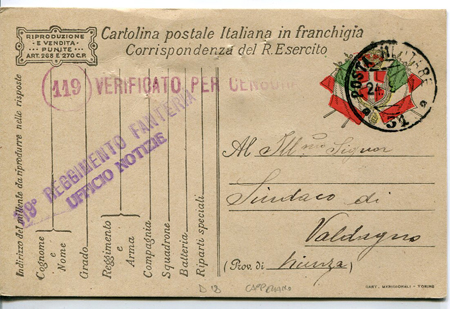 RIPRODUZIONE
E VENDITA
PUNITE
ART. 268 E 270 C.P.
Cartolina postale Italiana in franchigia
Corrispondenza del R. Esercito
119 VERIFICATO PER CENSURA
POSTA MILITARE
31
REGGIMENTO FANTERIA
UFFICIO NOTIZIE
Al Ill.mo Signor
Sindaco di
Valdagno
(Prov. di Vicenza)
Indirizzo del mittente da riprodurre nelle risposte
Cognome e Nome
Grado
Reggimento e Arma
Compagnia
Squadrone
Batteria
Riparti speciali
CART. MERIDIONALI - TORINO